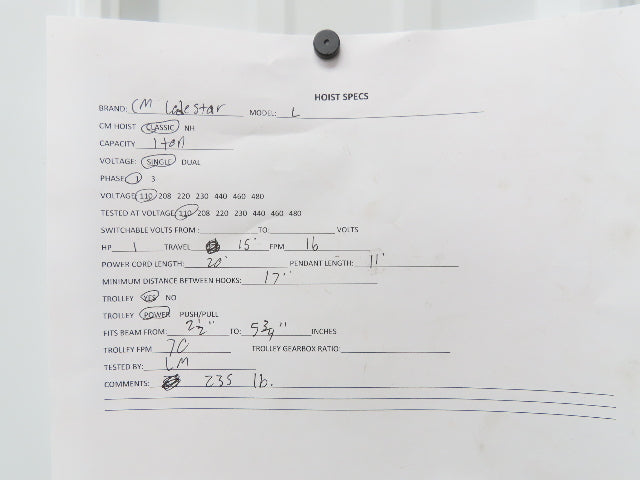 HOIST SPECS
BRAND: CM Lodestar MODEL: L
CM HOIST CLASSIC NH
CAPACITY 1 ton
VOLTAGE: SINGLE DUAL
PHASE 1 3
VOLTAGE 110 208 220 230 440 460 480
TESTED AT VOLTAGE 110 208 220 230 440 460 480
SWITCHABLE VOLTS FROM: TO: VOLTS
HP 1 TRAVEL 15' FPM 16
POWER CORD LENGTH: 20' PENDANT LENGTH: 11'
MINIMUM DISTANCE BETWEEN HOOKS: 17"
TROLLEY YES NO
TROLLEY POWER PUSH/PULL
FITS BEAM FROM: 2½" TO: 5¾" INCHES
TROLLEY FPM 70 TROLLEY GEARBOX RATIO:
TESTED BY: LM
COMMENTS: 235 lb.